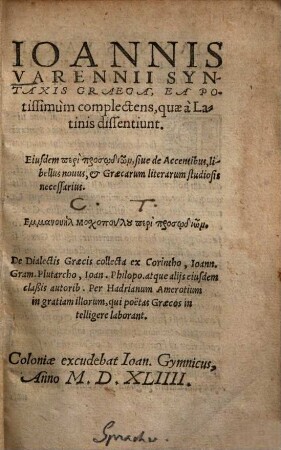 IOANNIS
VARENNII SYN-
TAXIS GRAECA, EA PO-
tissimùm complectens, quæ à La-
tinis dissentiunt.
Eiusdem περὶ προσῳδιῶν, siue de Accentibus, li-
bellus nouus, & Græcarum literarum studiosis
necessarius.
C. T.
Εμμανουὴλ μοχοπούλου περὶ προσῳδιῶν.
De Dialectis Græcis collecta ex Corintho, Ioann.
Gram. Plutarcho, Ioan. Philopo. atque alijs eiusdem
classis autorib. Per Hadrianum Amerotium
in gratiam illorum, qui poëtas Græcos in
telligere laborant.
Coloniæ excudebat Ioan. Gymnicus,
Anno M. D. XLIIII.
Sprache.